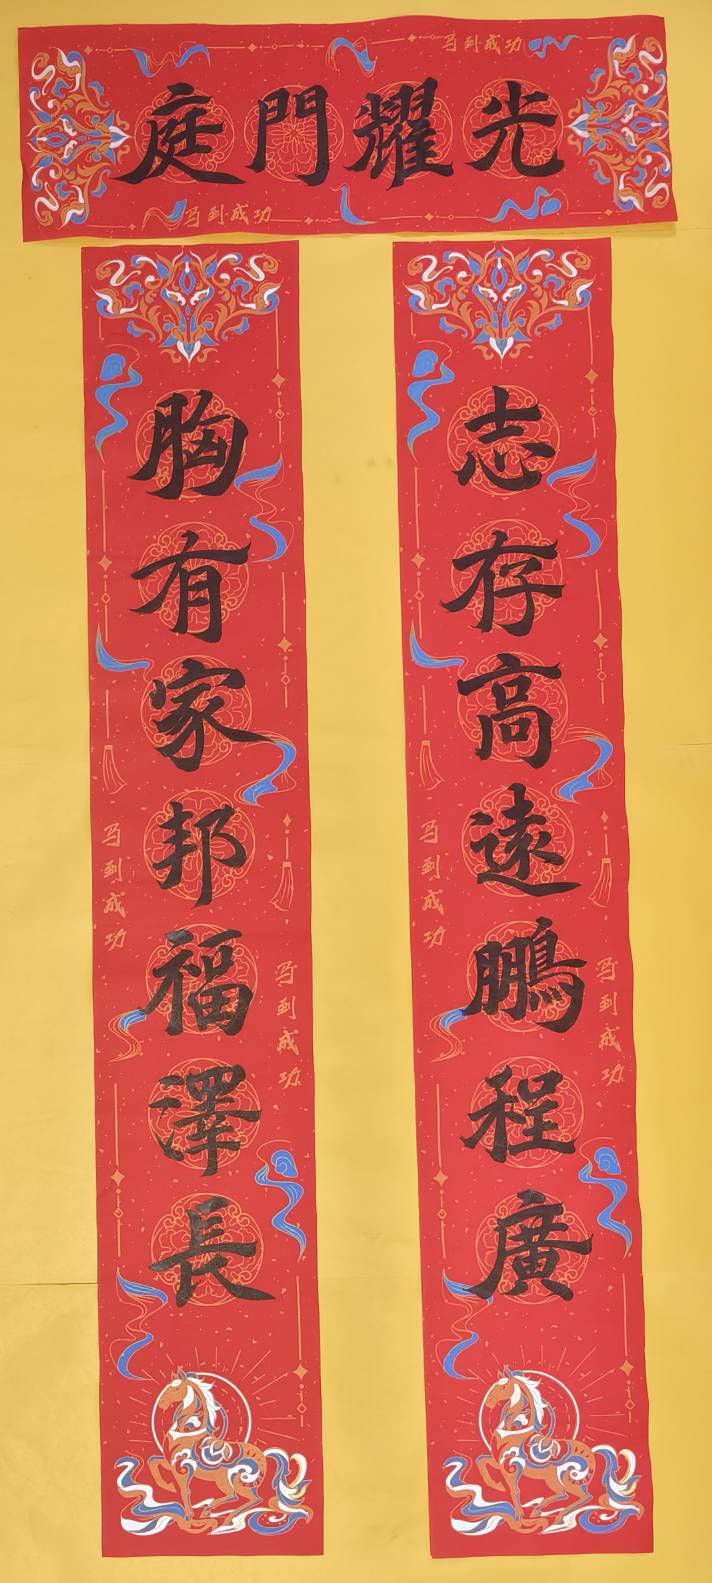 光耀門庭
志存高遠鵬程廣
胸有家邦福澤長
马到成功
马到成功
马到成功
马到成功
马到成功
马到成功